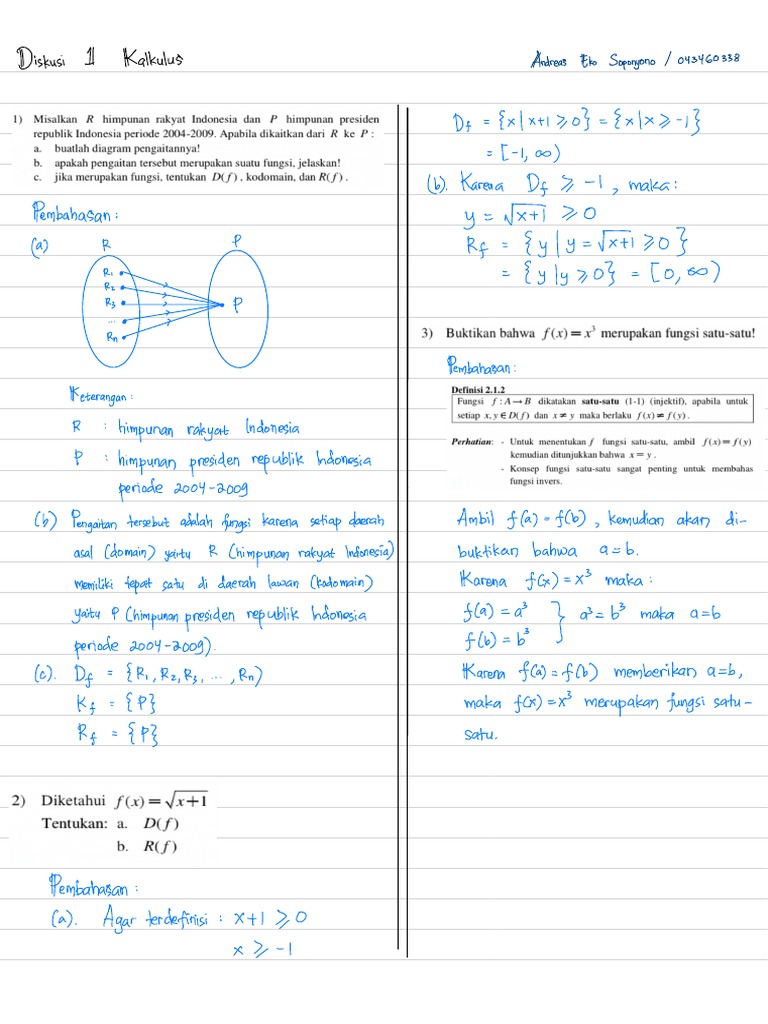 Diskusi 1 Kalkulus
Andreas Eko Soponyono / 043460338
1) Misalkan R himpunan rakyat Indonesia dan P himpunan presiden
republik Indonesia periode 2004-2009. Apabila dikaitkan dari R ke P :
a. buatlah diagram pengaitannya!
b. apakah pengaitan tersebut merupakan suatu fungsi, jelaskan!
c. jika merupakan fungsi, tentukan D(f), kodomain, dan R(f).
Pembahasan :
(a)
R
P
R₁
R₂
R₃
...
Rn
P
Keterangan :
R : himpunan rakyat Indonesia
P : himpunan presiden republik Indonesia
periode 2004-2009
(b) Pengaitan tersebut adalah fungsi karena setiap daerah
asal (domain) yaitu R (himpunan rakyat Indonesia)
memiliki tepat satu di daerah lawan (kodomain)
yaitu P (himpunan presiden republik Indonesia
periode 2004-2009).
(c). Df = {R₁, R₂, R₃, ..., Rn}
Kf = {P}
Rf = {P}
2) Diketahui f(x) = √x+1
Tentukan: a. D(f)
b. R(f)
Pembahasan :
(a). Agar terdefinisi : x+1 ⩾ 0
x ⩾ -1
Df = {x | x+1 ⩾ 0} = {x | x ⩾ -1}
= [-1, ∞)
(b). Karena Df ⩾ -1, maka:
y = √x+1 ⩾ 0
Rf = {y | y = √x+1 ⩾ 0}
= {y | y ⩾ 0} = [0, ∞)
3) Buktikan bahwa f(x) = x³ merupakan fungsi satu-satu!
Pembahasan :
Definisi 2.1.2
Fungsi f : A → B dikatakan satu-satu (1-1) (injektif), apabila untuk
setiap x, y ∈ D(f) dan x ≠ y maka berlaku f(x) ≠ f(y).
Perhatian: - Untuk menentukan f fungsi satu-satu, ambil f(x) = f(y)
kemudian ditunjukkan bahwa x = y.
- Konsep fungsi satu-satu sangat penting untuk membahas
fungsi invers.
Ambil f(a) = f(b), kemudian akan di-
buktikan bahwa a = b.
Karena f(x) = x³ maka :
f(a) = a³ } a³ = b³ maka a = b
f(b) = b³
Karena f(a) = f(b) memberikan a = b,
maka f(x) = x³ merupakan fungsi satu-
satu.